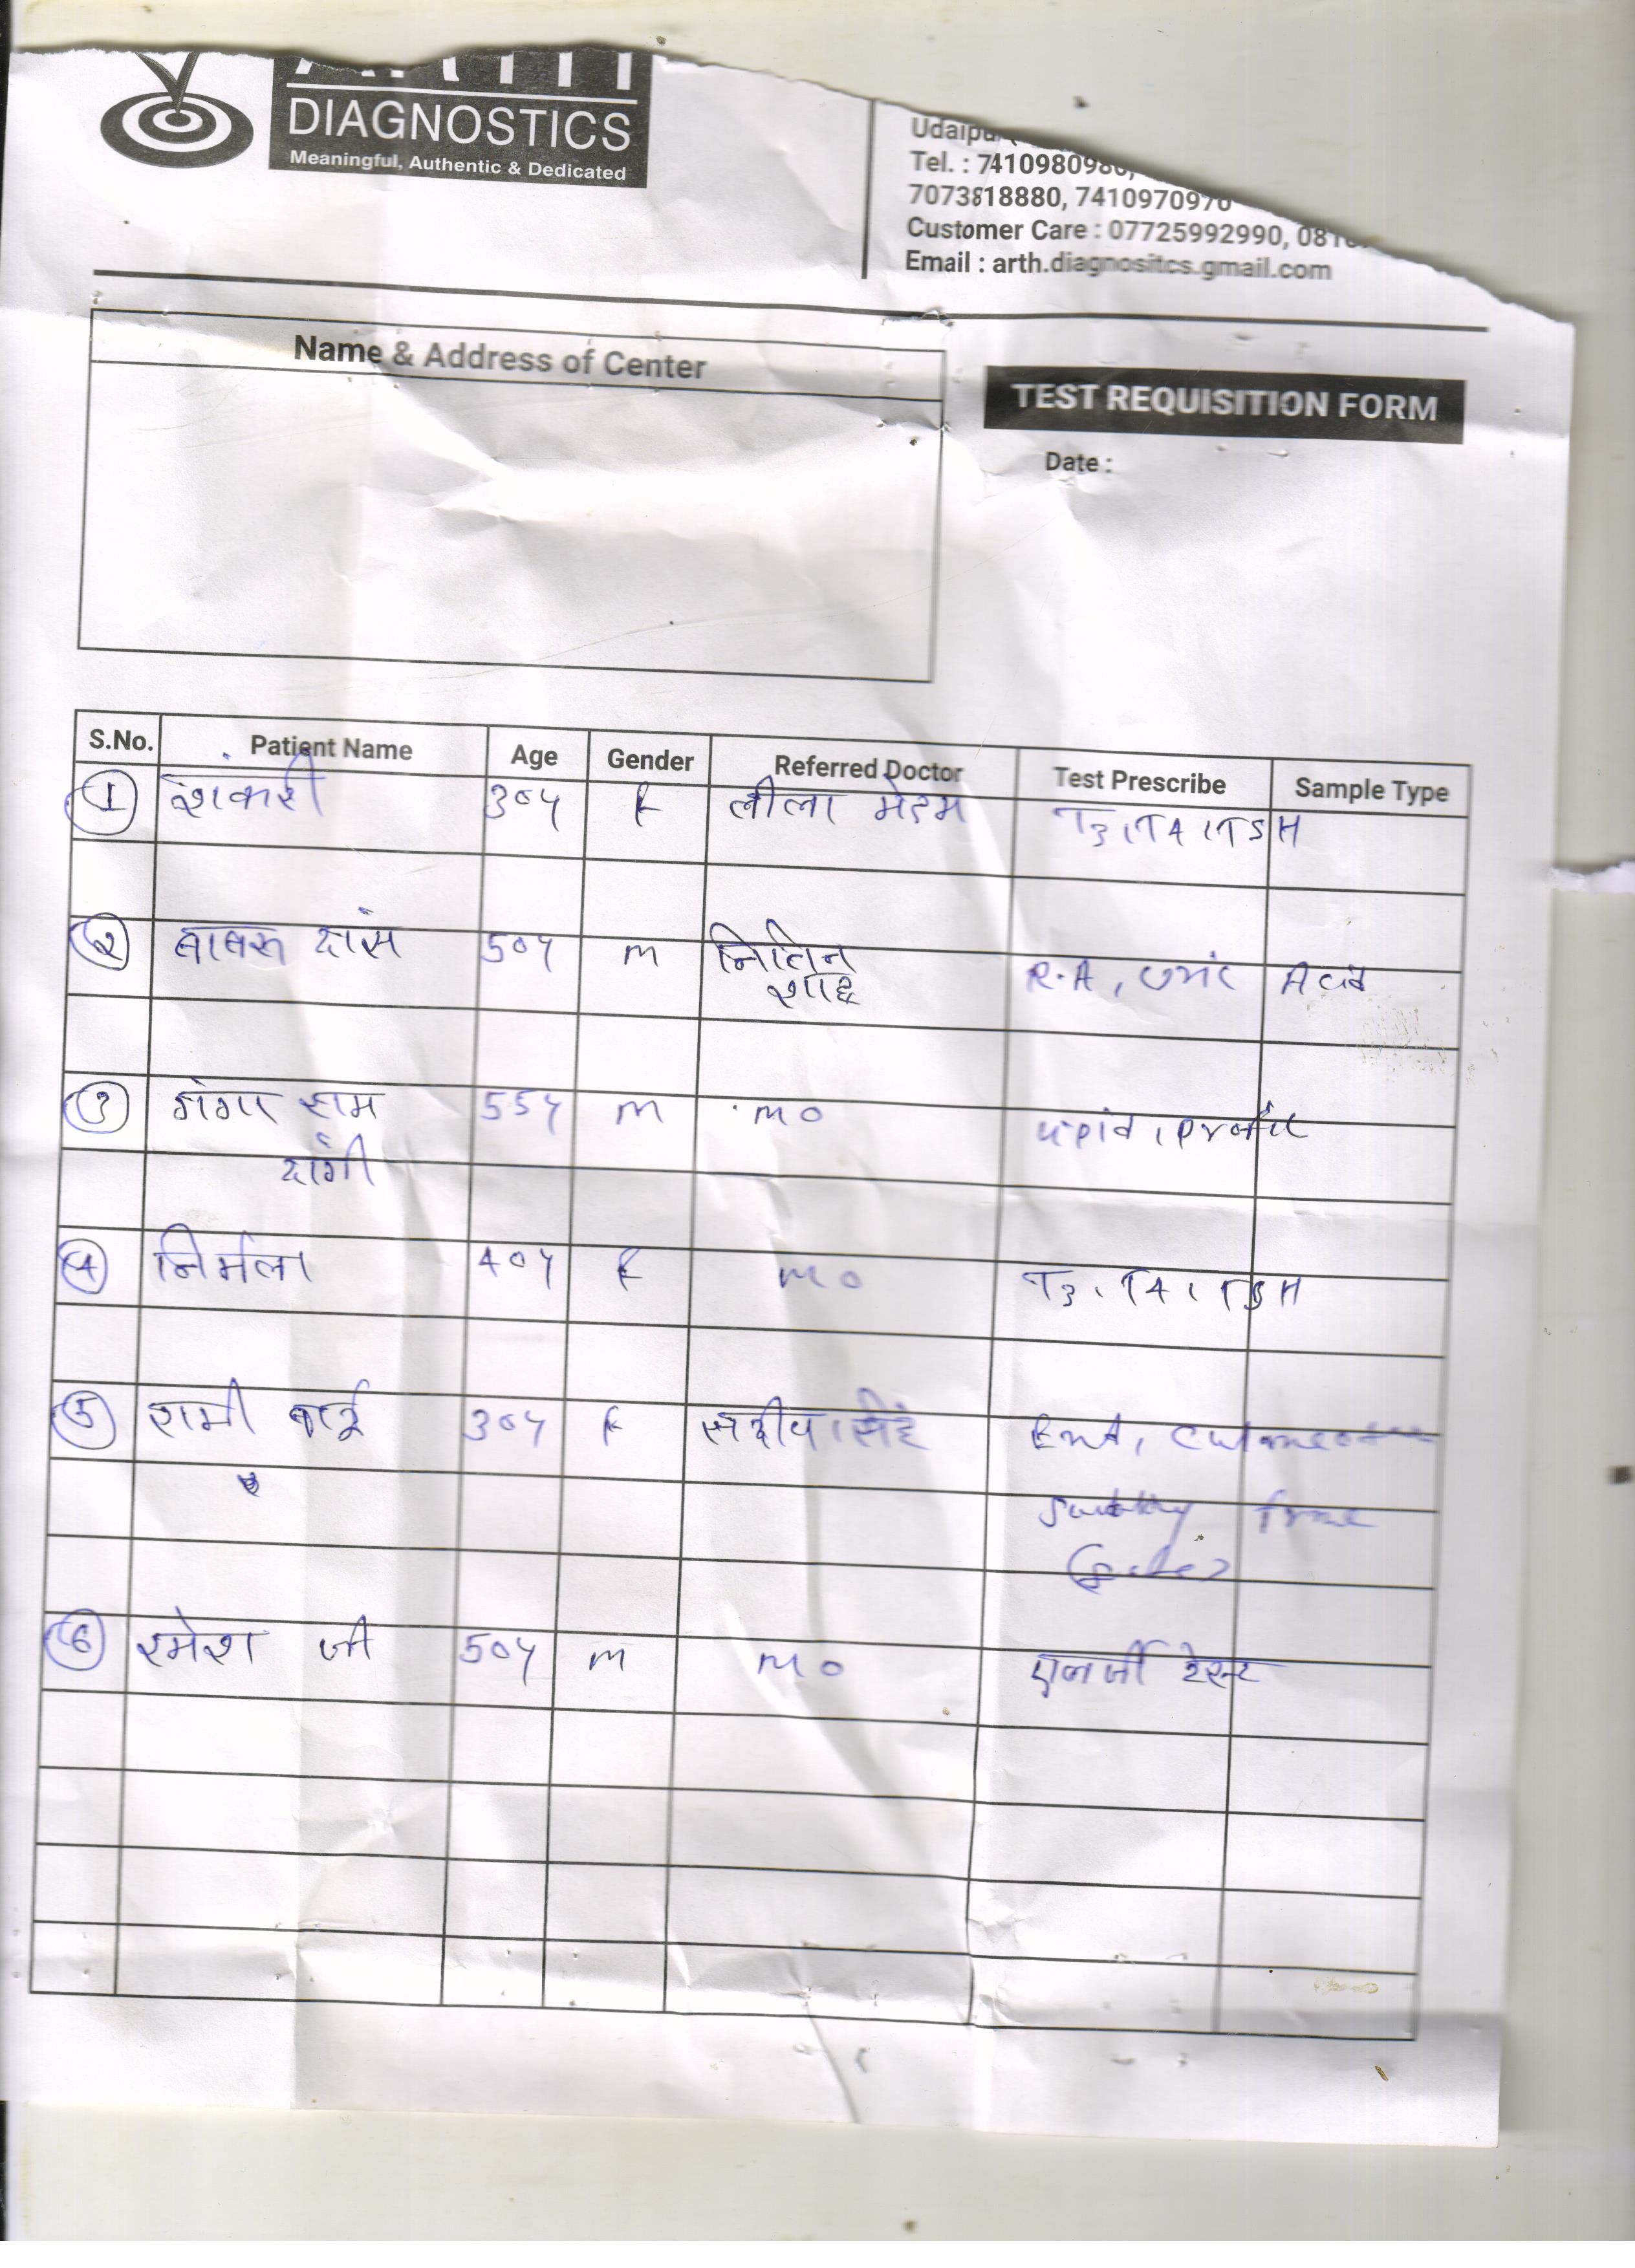 DIAGNOSTICS
Meaningful, Authentic & Dedicated
Tel. : 7410980980,
7073818880, 7410970970
Customer Care : 07725992990,
Email : arth.diagnositcs.gmail.com
Name & Address of Center
TEST REQUISITION FORM
Date :
S.No. Patient Name Age Gender Referred Doctor Test Prescribe Sample Type
1 शंकरी 30y F लीला मेडम T3, T4, TSH
2 दास 50y M नितिन R.A, Uric Acid
शाह
3 गंगा राम 55y M MO Lipid, Profile
दांगी
4 निर्मला 40y F MO T3, T4, TSH
5 बाई 30y F
6 रमेश जी 50y M MO एलर्जी टेस्ट